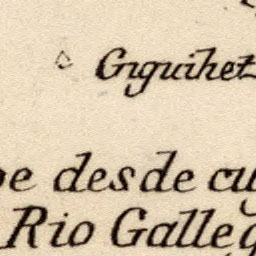 Giguihet
pe desde cu
Rio Galleg